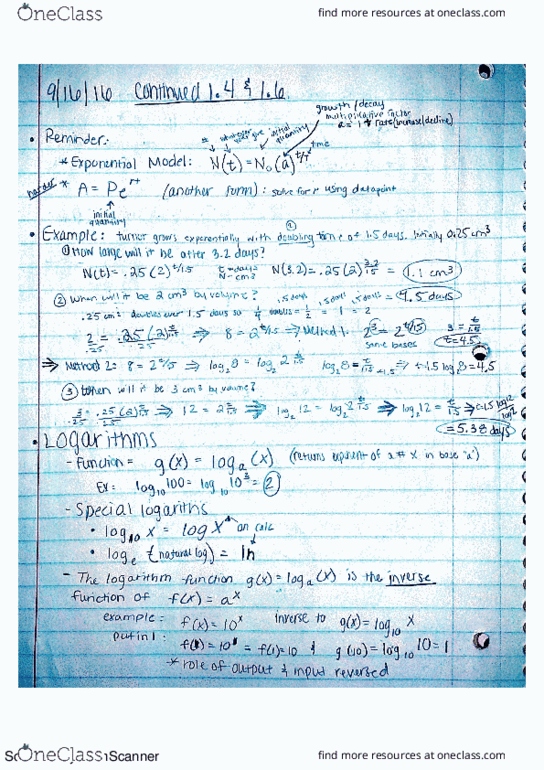 OneClass
find more resources at oneclass.com
9/16/16 Continued 1.4 & 1.6
growth/decay
multiplicative factor
a = 1 + rate (increase/decline)
initial
quantity
time
• Reminder:
* Exponential Model: N(t) = N₀(a)^t/T
harder * A = Pe^rt (another form): solve for r using datapoint
initial
quantity
• Example: tumor grows exponentially with doubling time of 1.5 days. Initially 0.25 cm³
① How large will it be after 3.2 days?
N(t) = .25(2)^t/1.5 t = days N = cm³ N(3.2) = .25(2)^3.2/1.5 = 1.1 cm³
② When will it be 2 cm³ by volume? 1.5 days 1.5 days 1.5 days = 4.5 days
.25 cm³ doubles over 1.5 days so 1/4 doubles = 1/2 = 1 = 2
2/.25 = .25(2)^t/1.5/.25 ⇒ 8 = 2^t/1.5 ⇒ Method 1: 2³ = 2^t/1.5 same bases 3 = t/1.5 t = 4.5
⇒ Method 2: 8 = 2^t/1.5 ⇒ log₂8 = log₂2^t/1.5 log₂8 = t/1.5 ⇒ t = 1.5 log₂8 = 4.5
③ When will it be 3 cm³ by volume?
3/.25 = .25(2)^t/1.5/.25 ⇒ 12 = 2^t/1.5 ⇒ log₂12 = log₂2^t/1.5 ⇒ log₂12 = t/1.5
= 5.38 days
• Logarithms
- Function = g(x) = logₐ(x) (returns exponent of a # x in base "a")
Ex: log₁₀100 = log₁₀10² = 2
- Special logariths
• log₁₀ x = log x on calc
• logₑ (natural log) = ln
- The logarithm function g(x) = logₐ(x) is the inverse
function of f(x) = a^x
example: f(x) = 10^x inverse to g(x) = log₁₀ x
put in 1: f(1) = 10¹ = f(1) = 10 & g(10) = log₁₀ 10 = 1
* role of output & input reversed
OneClass
Scanner
find more resources at oneclass.com